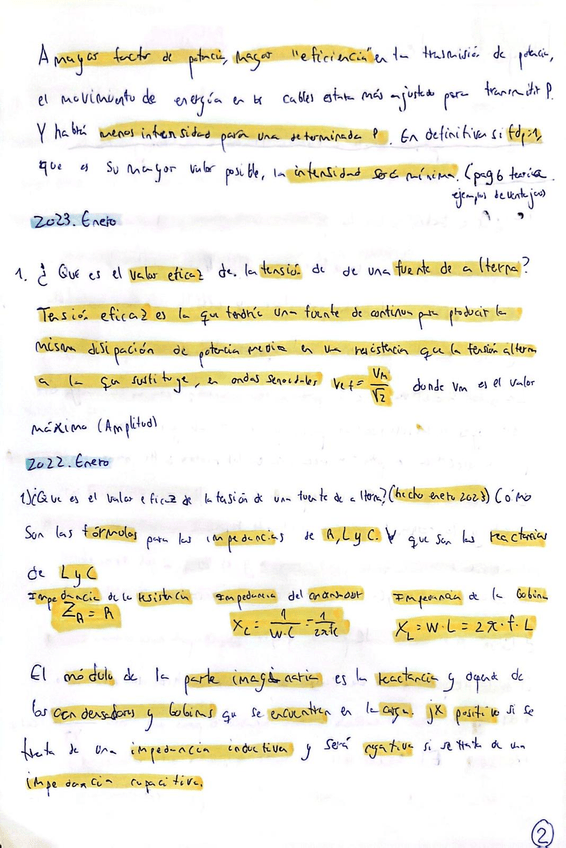 A mayor factor de potencia, mayor "eficiencia" en la trasmisión de potencia,
el movimiento de energía en los cables estata más ajustado para transmitir P.
Y habrá menos intensidad para una determinada P. En definitiva si fdp=1,
que es su mayor valor posible, la intensidad será mínima. (pag 6 teoría
ejemplos de ventajas)
2023. Enero
1. ¿ Que es el valor eficaz de la tensión de de una fuente de alterna?
Tensión eficaz es la que tendría una fuente de continua para producir la
misma disipación de potencia media en una resistencia que la tensión alterna
a la que sustituye, en ondas senoidales Vef = VM/√2 donde VM es el valor
máximo (Amplitud)
2022. Enero
1) ¿Que es el valor eficaz de la tensión de una fuente de alterna? (hecho enero 2023) Cómo
son las fórmulas para las impedancias de R, L y C. Y que son las reactancias
de L y C
Impedancia de la resistencia Impedancia del condensador Impedancia de la bobina
ZR = R XL = 1/W·C = 1/2πfC XL = W·L = 2π·f·L
El módulo de la parte imaginaria es la reactancia y depende de
los condensadores y bobinas que se encuentren en la carga. jX positivo si se
trata de una impedancia inductiva y será negativa si se trata de una
impedancia capacitiva.
2